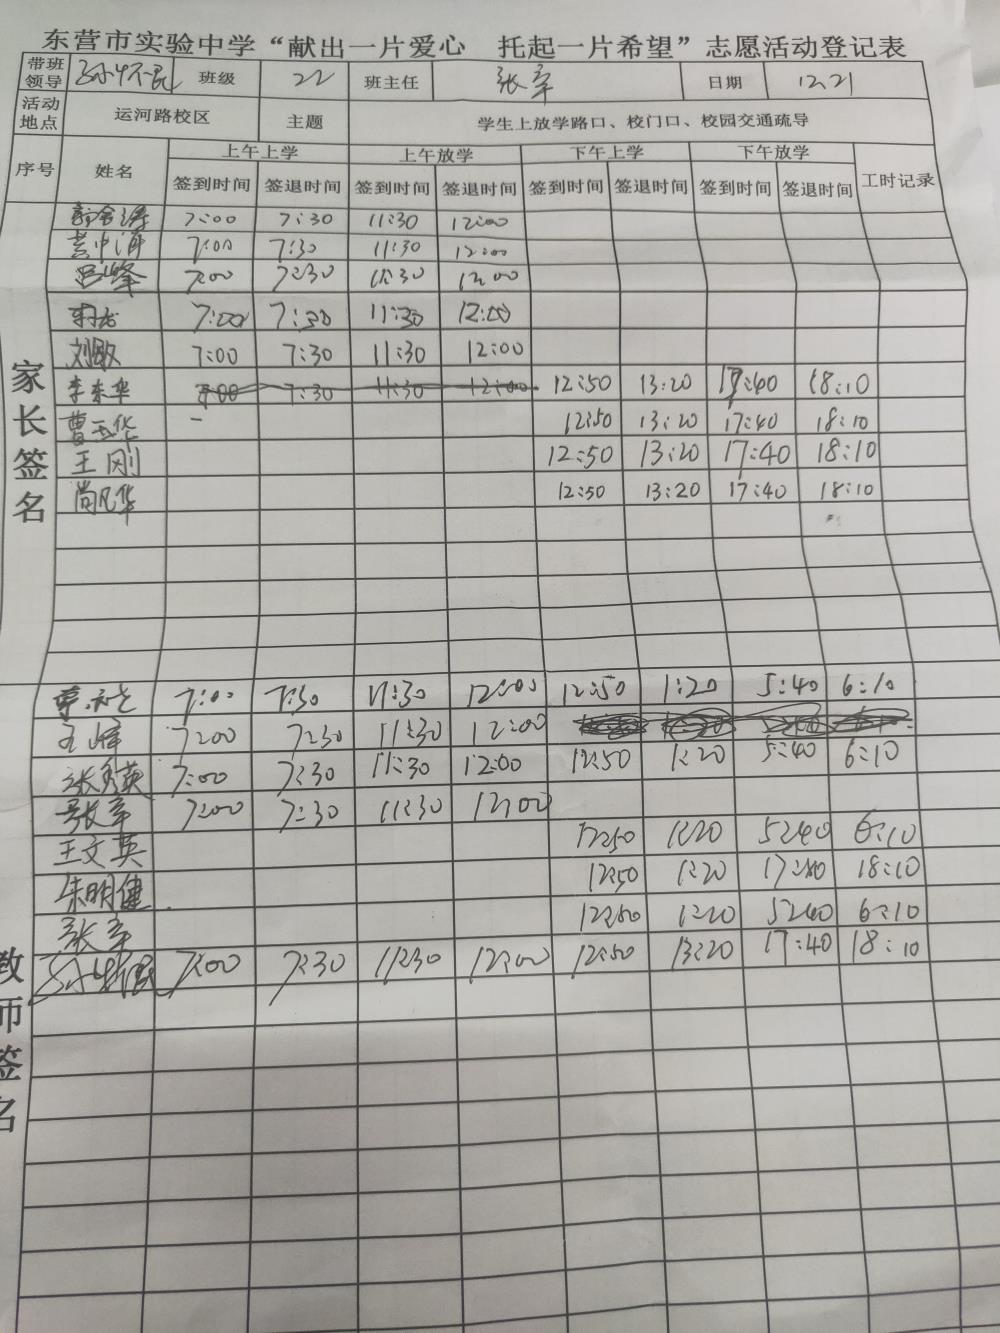 东营市实验中学“献出一片爱心 托起一片希望”志愿活动登记表
带班领导 班级 22 班主任 张军 日期 12.21
活动地点 运河路校区 主题 学生上放学路口、校门口、校园交通疏导
序号 姓名 上午上学 上午放学 下午上学 下午放学 工时记录
签到时间 签退时间 签到时间 签退时间 签到时间 签退时间 签到时间 签退时间
家长签名
7:00 7:30 11:30 12:00
7:00 7:30 11:30 12:00
吕峰 7:00 7:30 11:30 12:00
7:00 7:30 11:30 12:00
刘敏 7:00 7:30 11:30 12:00
李东华 7:00 7:30 11:30 12:00 12:50 13:20 17:40 18:10
曹玉华 12:50 13:20 17:40 18:10
王刚 12:50 13:20 17:40 18:10
尚凡华 12:50 13:20 17:40 18:10
教师签名
7:00 7:30 11:30 12:00 12:50 1:20 5:40 6:10
7:00 7:30 11:30 12:00
张秀英 7:00 7:30 11:30 12:00 12:50 1:20 5:40 6:10
张军 7:00 7:30 11:30 12:00
王文英 12:50 1:20 5:40 6:10
朱明健 12:50 1:20 17:40 18:10
张军 12:50 1:20 5:40 6:10
7:00 7:30 11:30 12:00 12:50 13:20 17:40 18:10